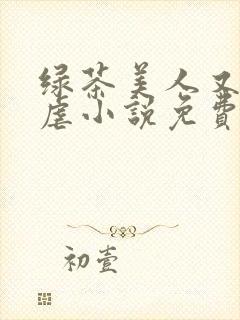 绿茶美人又
虐小說免費
初壹